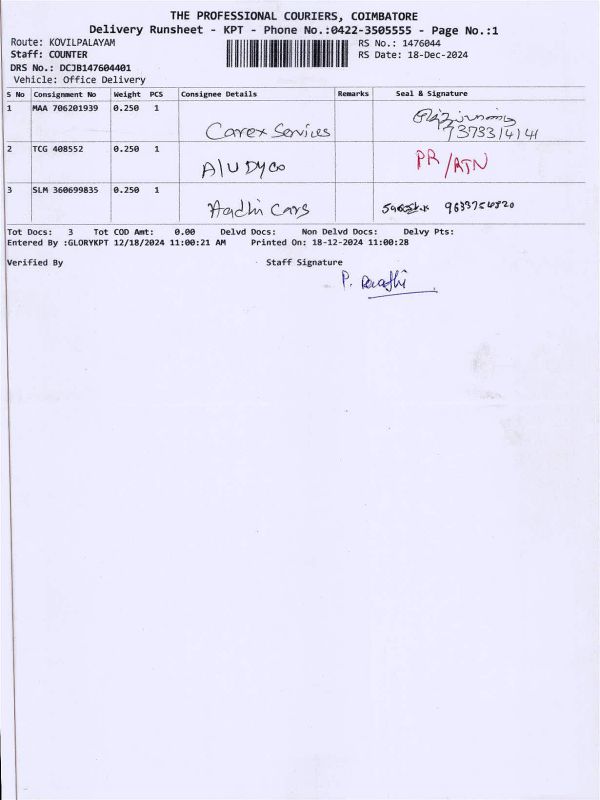 THE PROFESSIONAL COURIERS, COIMBATORE
Delivery Runsheet - KPT - Phone No.:0422-3505555 - Page No.:1
Route: KOVILPALAYAM
RS No.: 1476044
Staff: COUNTER
RS Date: 18-Dec-2024
DRS No.: DCJB147604401
Vehicle: Office Delivery
S No Consignment No Weight PCS Consignee Details Remarks Seal & Signature
1 MAA 706201939 0.250 1 Carex Services
2 TCG 408552 0.250 1 AluDyco PR/RTN
3 SLM 360699835 0.250 1 Aadhi Cars
Tot Docs: 3 Tot COD Amt: 0.00 Delvd Docs: Non Delvd Docs: Delvy Pts:
Entered By :GLORYKPT 12/18/2024 11:00:21 AM Printed On: 18-12-2024 11:00:28
Verified By Staff Signature